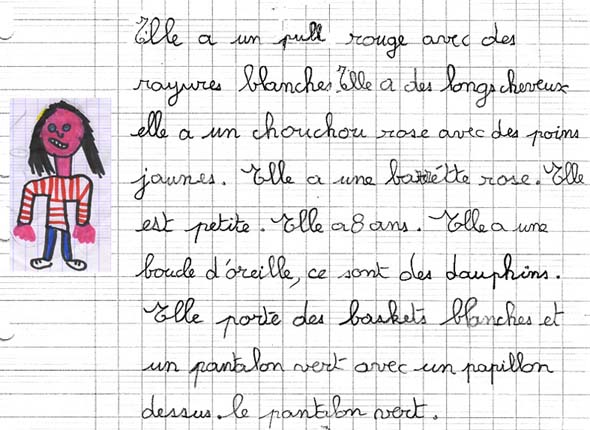 Elle a un pull rouge avec des
rayures blanches. Elle a des longs cheveux
elle a un chouchou rose avec des poins
jaunes. Elle a une barrétte rose. Elle
est petite. Elle a 8 ans. Elle a une
boucle d'oreille, ce sont des dauphins.
Elle porte des baskets blanches et
un pantalon vert avec un papillon
dessus. le pantalon vert.